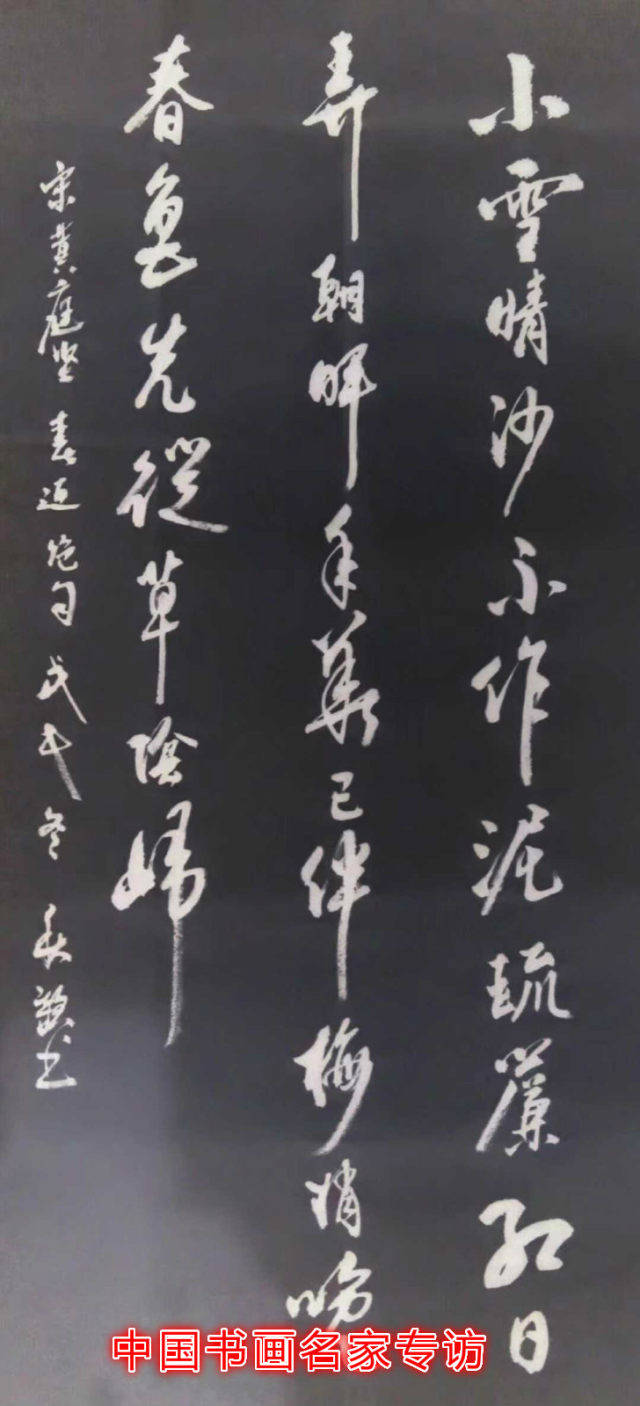 小雪晴沙不作泥疏簾红日
弄朝晖年華已伴梅梢晚
春色先從草際歸
宋黄庭坚春近绝句戊戌冬书
中国书画名家专访